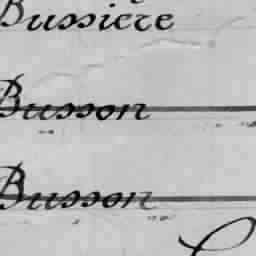 Bussiere
Busson
Busson